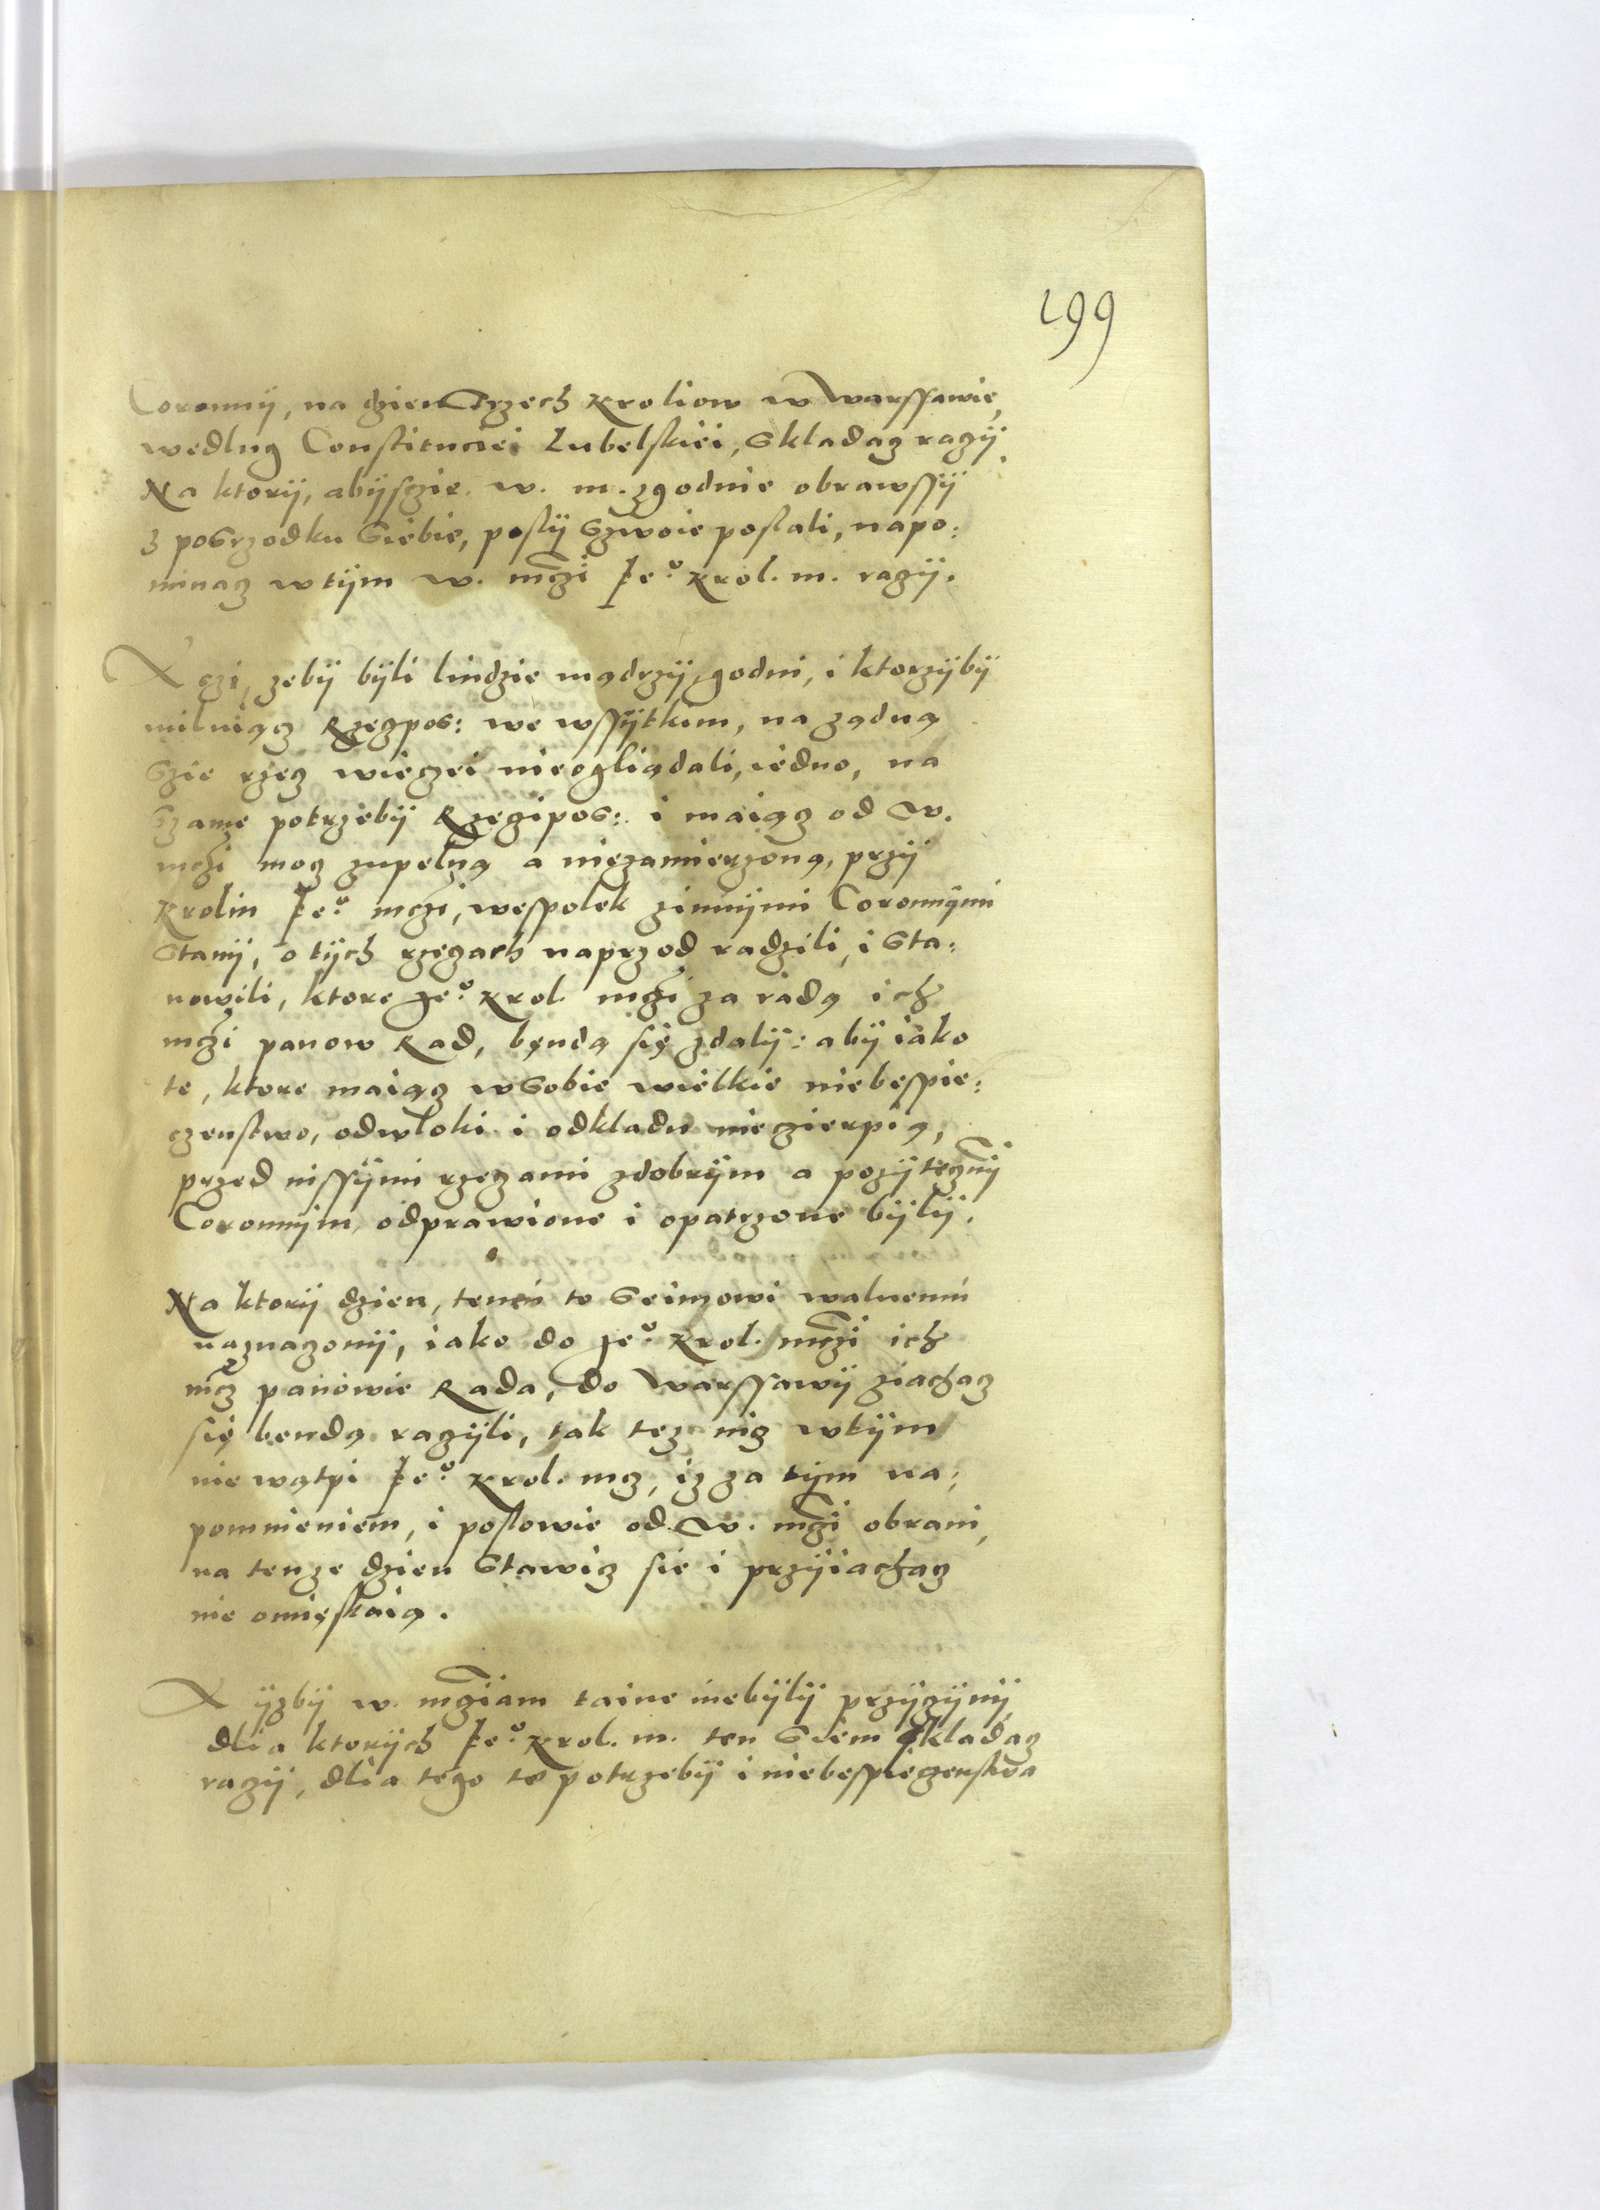 199
Coronnÿ, na dzien Trzech Kroliow w Warssawie,
wedlug Constitucÿei Lubelskiei, skladacz raczÿ.
Na ktorÿ, abÿsczie w. m. zgodnie obrawssÿ
z posrzodku siebie, poslÿ szwoie poslali, napo:
minacz w tÿm w. mczi Je° Krol. m. raczÿ.
A czi, zebÿ bÿli liudzie mądrzÿ, godni, i ktorzÿbÿ
miluiącz Rzeczpos: we wssÿtkim, na ządną
szie rzecz wieczei nieogliądali, iedno, na
szame potrzebÿ Rzeczipos: i maiącz od W.
mczi mocz zupelną a niezamierzoną, przÿ
Kroliu Je° mczi, wespolek zinnÿmi Coronnÿmi
stanÿ, o tÿch rzeczach naprzod radzili, i sta:
nowili, ktore Je° Krol. mczi za radą ich
mczi panow Rad, bęndą się zdalÿ: abÿ iako
te, ktore maiącz wsobie wielkie niebespie:
czenstwo, odwloki i odkladu nieczierpią,
przed inssÿmi rzeczami zdobrÿm a pozÿtecznÿ
Coronnÿm, odprawione i opatrzone bÿlÿ.
Na ktorÿ dzien, temu to seimowi walnemu
naznaczonÿ, iako do Je° Krol. mczi ich
mcz panowie Rada, do Warssawÿ ziachacz
się bendą raczÿli, tak tez nicz wtÿm
nie wątpi Je° Krol. mcz, iz za tÿm na:
pomnieniem, i poslowie od W. mczi obrani,
na tenze dzien stawicz sie i przÿiachacz
nie omięskaią.
A ÿzbÿ w. mcziam taine niebÿlÿ przÿczÿnÿ,
dlia ktorÿch Je° Krol. m. ten siem skladacz
raczÿ, dlia tego te potrzebÿ i niebespieczenstwa